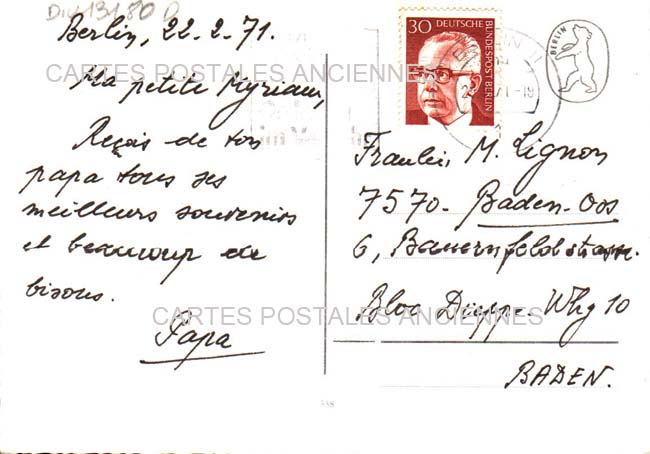 Berlin, 22.2.71.
Ma petite Myriam,
Reçois de ton
papa tous ses
meilleurs souvenirs
et beaucoup de
bisous.
Papa
30 DEUTSCHE
BUNDESPOST BERLIN
BERLIN
Fraulein M. Lignon
7570. Baden-Oos
6, Bauernfeldstrasse.
Bloc Dieppe-Whg 10
BADEN.
CARTES POSTALES ANCIENNES
CARTES POSTALES ANCIENNES